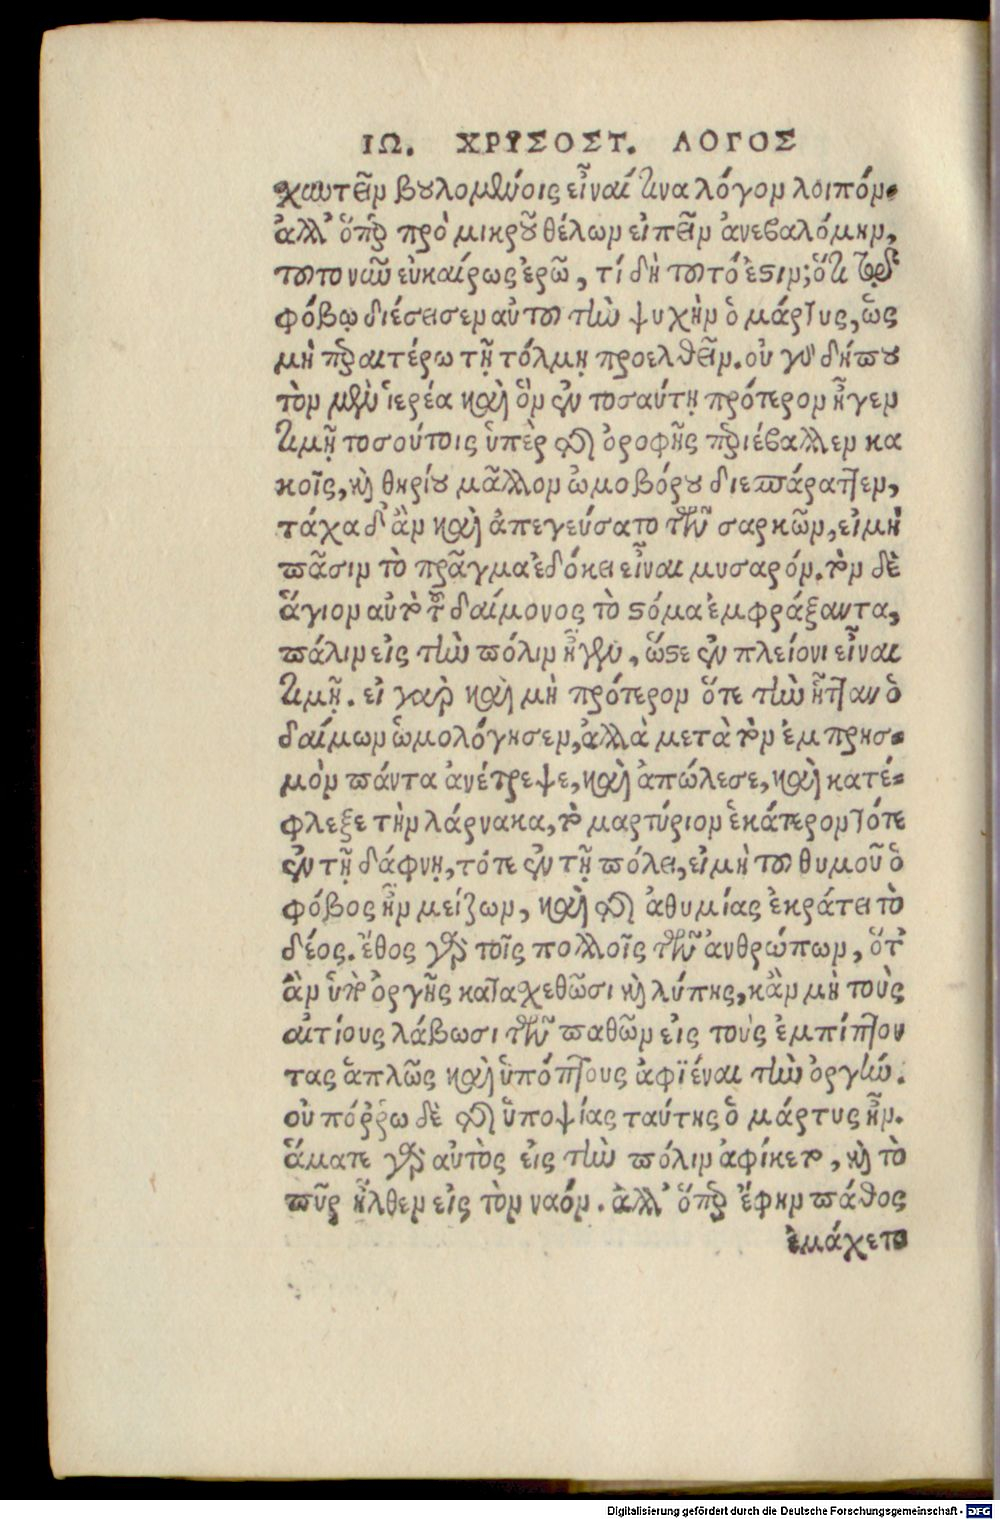 ΙΩ. ΧΡΥΣΟΣΤ. ΛΟΓΟΣ
χαυτεῖν βουλομένοις εἶναί τινα λόγον λοιπόν.
ἀλλ' ὅπερ πρὸ μικροῦ θέλων εἰπεῖν ἀνεβαλόμην,
τοῦτο νῦν εὐκαίρως ἐρῶ, τί δὴ τοῦτό ἐστιν; ὅτι
φόβῳ διέσεισεν αὐτοῦ τὴν ψυχὴν ὁ μάρτυς, ὡς
μὴ περαιτέρω τῇ τόλμῃ προελθεῖν. οὐ γὰρ δήπου
τὸν μὲν ἱερέα καὶ ὃν ἐν τοσαύτῃ πρότερον ἦγεν
τιμῇ τοσούτοις ὑπὲρ τῆς ὀροφῆς περιέβαλλεν κα
κοῖς, καὶ θηρίου μᾶλλον ὠμοβόρου διεσπάραττεν,
τάχα δ' ἂν καὶ ἀπεγεύσατο τῶν σαρκῶν, εἰ μὴ
πᾶσιν τὸ πρᾶγμα ἐδόκει εἶναι μυσαρόν. τὸν δὲ
ἅγιον αὐτὸν τοῦ δαίμονος τὸ στόμα ἐμφράξαντα,
πάλιν εἰς τὴν πόλιν ἦγεν, ὥστε ἐν πλείονι εἶναι
τιμῇ. εἰ γὰρ καὶ μὴ πρότερον ὅτε τὴν ἧτταν ὁ
δαίμων ὡμολόγησεν, ἀλλὰ μετὰ τὸν ἐμπρησ-
μὸν πάντα ἀνέτρεψε, καὶ ἀπώλεσε, καὶ κατέ-
φλεξε τὴν λάρνακα, τὸ μαρτύριον ἑκάτερον τότε
ἐν τῇ δάφνῃ, τότε ἐν τῇ πόλει, εἰ μὴ τοῦ θυμοῦ ὁ
φόβος ἦν μείζων, καὶ τῆς ἀθυμίας ἐκράτει τὸ
δέος. ἔθος γὰρ τοῖς πολλοῖς τῶν ἀνθρώπων, ὅτ'
ἂν ὑπὸ ὀργῆς κατασχεθῶσι καὶ λύπης, κἂν μὴ τοὺς
αἰτίους λάβωσι τῶν παθῶν εἰς τοὺς ἐμπίπτον
τας ἁπλῶς καὶ ὑπόπτους ἀφϊέναι τὴν ὀργήν.
οὐ πόῤῥω δὲ τῆς ὑποψίας ταύτης ὁ μάρτυς ἦν.
ἅμα τε γὰρ αὐτὸς εἰς τὴν πόλιν ἀφίκετο, καὶ τὸ
πῦρ ἦλθεν εἰς τὸν ναόν. ἀλλ' ὅπερ ἔφην πάθος
ἐμάχετο
Digitalisierung gefördert durch die Deutsche Forschungsgemeinschaft - DFG